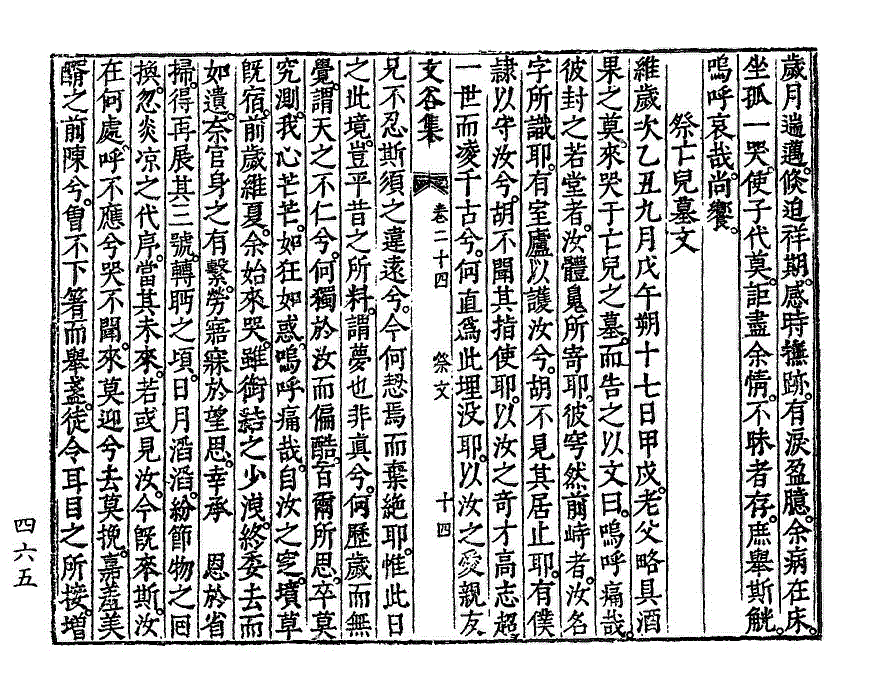 歲月遄邁。倐迫祥期。感時撫跡。有淚盈臆。余病在床。
坐孤一哭。使子代奠。詎盡余情。不昧者存。庶舉斯觥。
嗚呼哀哉。尙饗。
祭亡兒墓文
維歲次乙丑九月戊午朔十七日甲戌。老父略具酒
果之奠。來哭于亡兒之墓。而告之以文曰。嗚呼痛哉。
彼封之若堂者。汝體鬼所寄耶。彼穹然前峙者。汝名
字所識耶。有室廬以護汝兮。胡不見其居止耶。有僕
隷以守汝兮。胡不聞其指使耶。以汝之奇才高志。超
一世而凌千古兮。何直爲此埋沒耶。以汝之愛親友
文谷集 卷二十四 祭文 十四
兄不忍斯須之違遠兮。今何恝焉而棄絶耶。惟此日
之此境。豈平昔之所料。謂夢也非眞兮。何歷歲而無
覺。謂天之不仁兮。何獨於汝而偏酷。昔爾所思。卒莫
究測。我心芒芒。如狂如惑。嗚呼痛哉。自汝之窆。墳草
旣宿。前歲維夏。余始來哭。雖銜結之少洩。終委去而
如遺。奈官身之有繫。勞寤寐於望思。幸承 恩於省
掃。得再展其三號。轉眄之頃。日月滔滔。紛節物之回
換。忽炎凉之代序。當其未來。若或見汝。今旣來斯。汝
在何處。呼不應兮哭不聞。來莫迎兮去莫挽。嘉羞美
醑之前陳兮。曾不下箸而舉盞。徒令耳目之所接。增
四六五